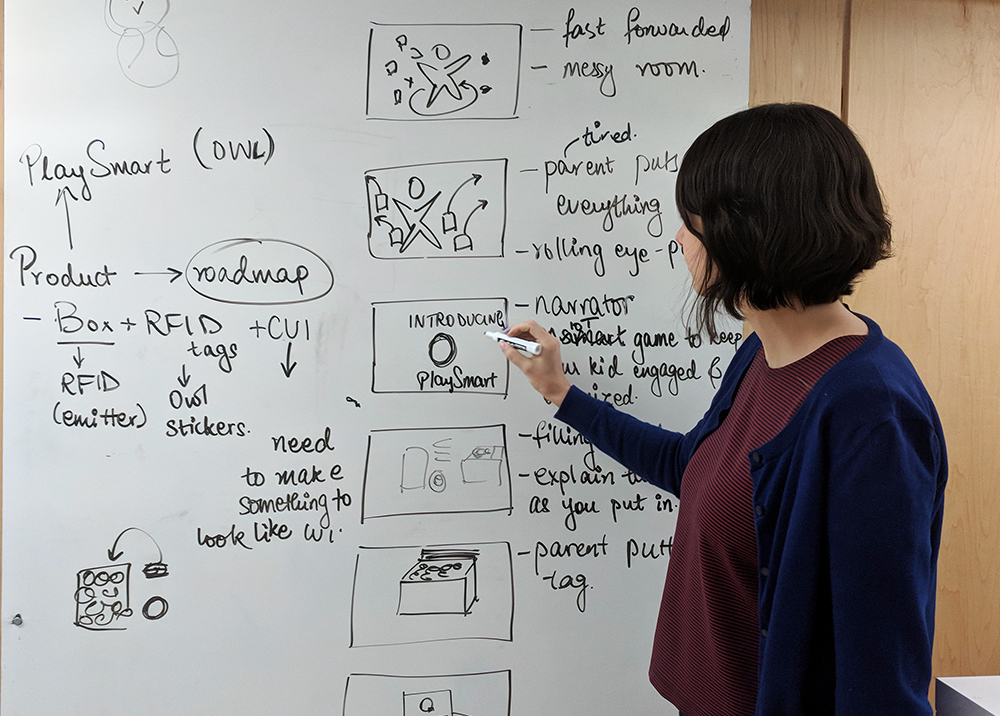 PlaySmart (OWL)
Product → roadmap
- Box + RFID tags + CUI
RFID
(emitter)
Owl
stickers.
need
to make
something to
look like
- fast forwarded
- messy room.
tired.
- parent puts
everything
- rolling eye-
- narrator
INTRODUCING
PlaySmart
IoT
smart game to keep
kid engaged &
- filling
- explain
as you put in.
- parent
tag.